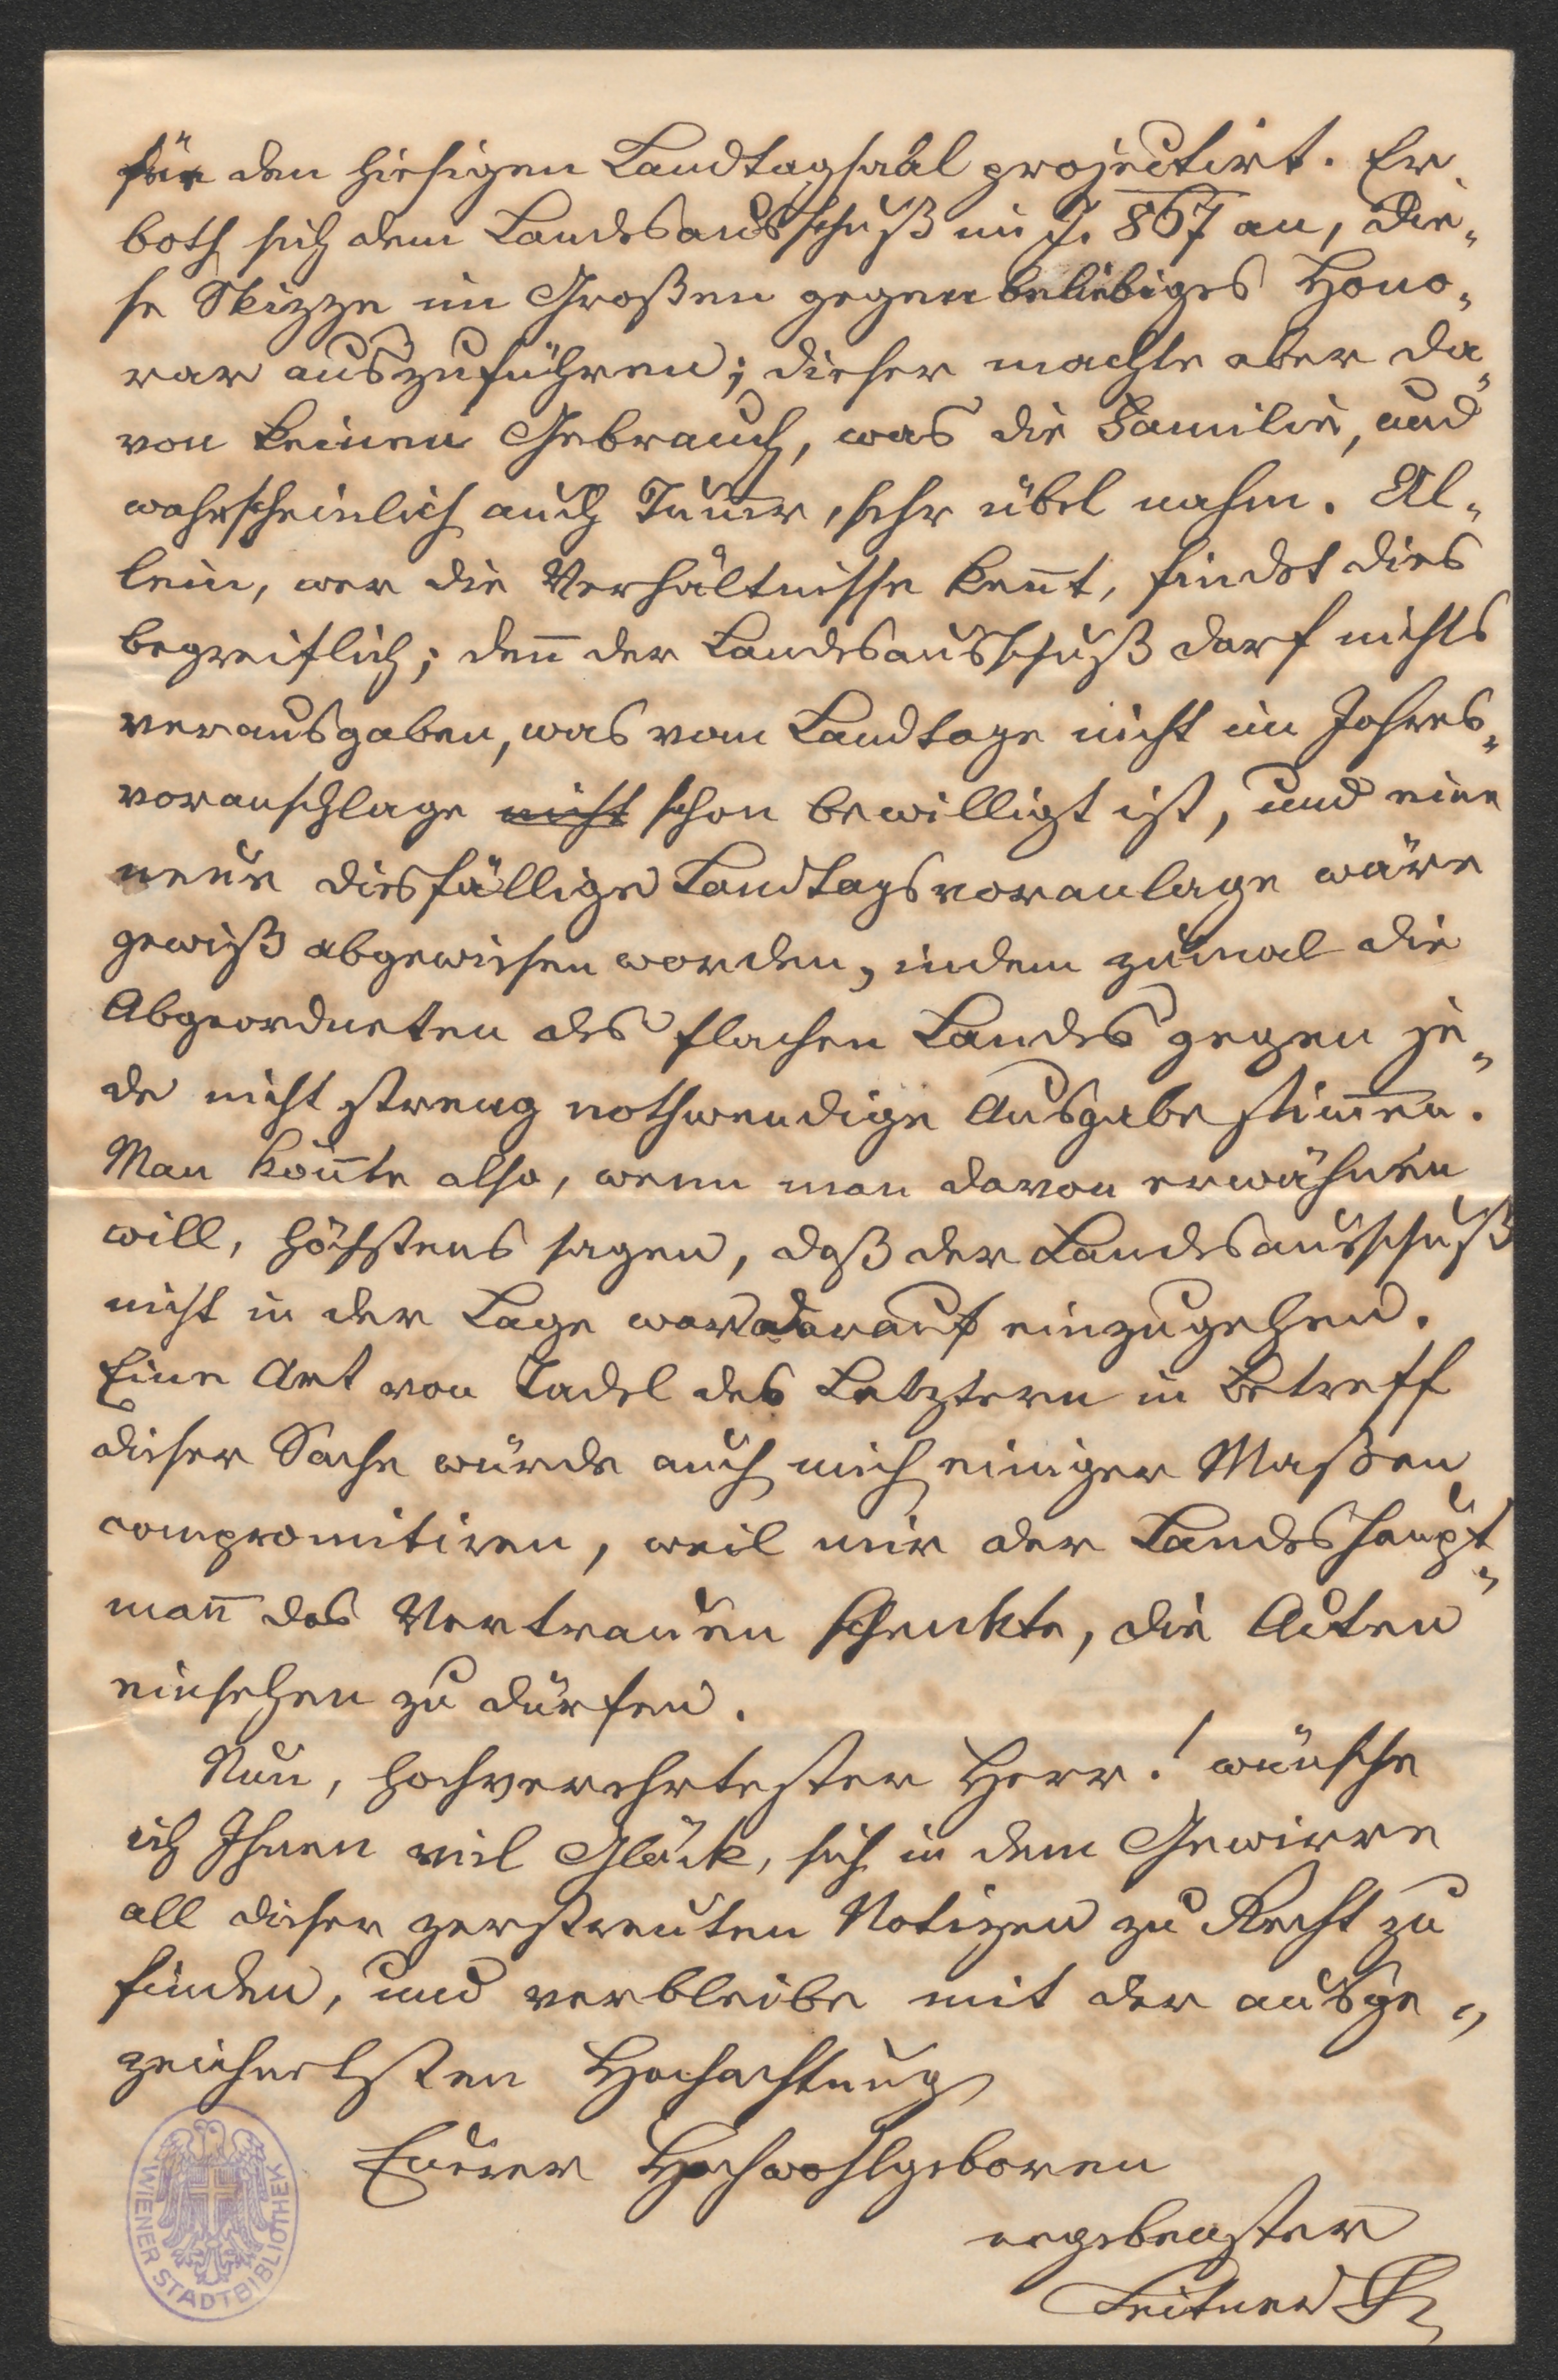 für den hiesigen Landtagsaal projectirt. Er
both sich dem Landesausschuß im J. 867 an, die-
se Skizze im Großen gegen beliebiges Hono-
rar auszuführen; dieser machte aber da-
von keinen Gebrauch, was die Familie, und
wahrscheinlich auch Tuñer, sehr übel nahm. Al-
lein, wer die Verhältnisse keñt, findet dies
begreiflich; deñ der Landesausschuß darf nichts
verausgaben, was vom Landtage nicht im Jahres-
voranschlage nicht schon bewilligt ist, und eine
neue diesfällige Landtagsvoranlage wäre
gewiß abgewiesen worden, indem zumal die
Abgeordneten des flachen Landes gegen je-
de nicht streng nothwendige Ausgabe stim̄en.
Man köñte also, wenn man davon erwähnen
will, höchstens sagen, daß der Landesausschuß
nicht in der Lage war darauf einzugehen.
Eine Art von Tadel des Letztern in Betreff
dieser Sache würde auch mich einiger Maßen
compromitiren, weil mir der Landeshaupt-
mañ das Vertrauen schenkte, die Acten
einsehen zu dürfen.
Nun, hochverehrtester Herr! wünsche
ich Ihnen viel Glück, sich in dem Gewirre
all dieser zerstreuten Notizen zu Recht zu
finden, und verbleibe mit der ausge-
zeichnetsten Hochachtung
Eurer Hochwohlgeboren
ergebenster
Leitner
WIENER STADTBIBLIOTHEK